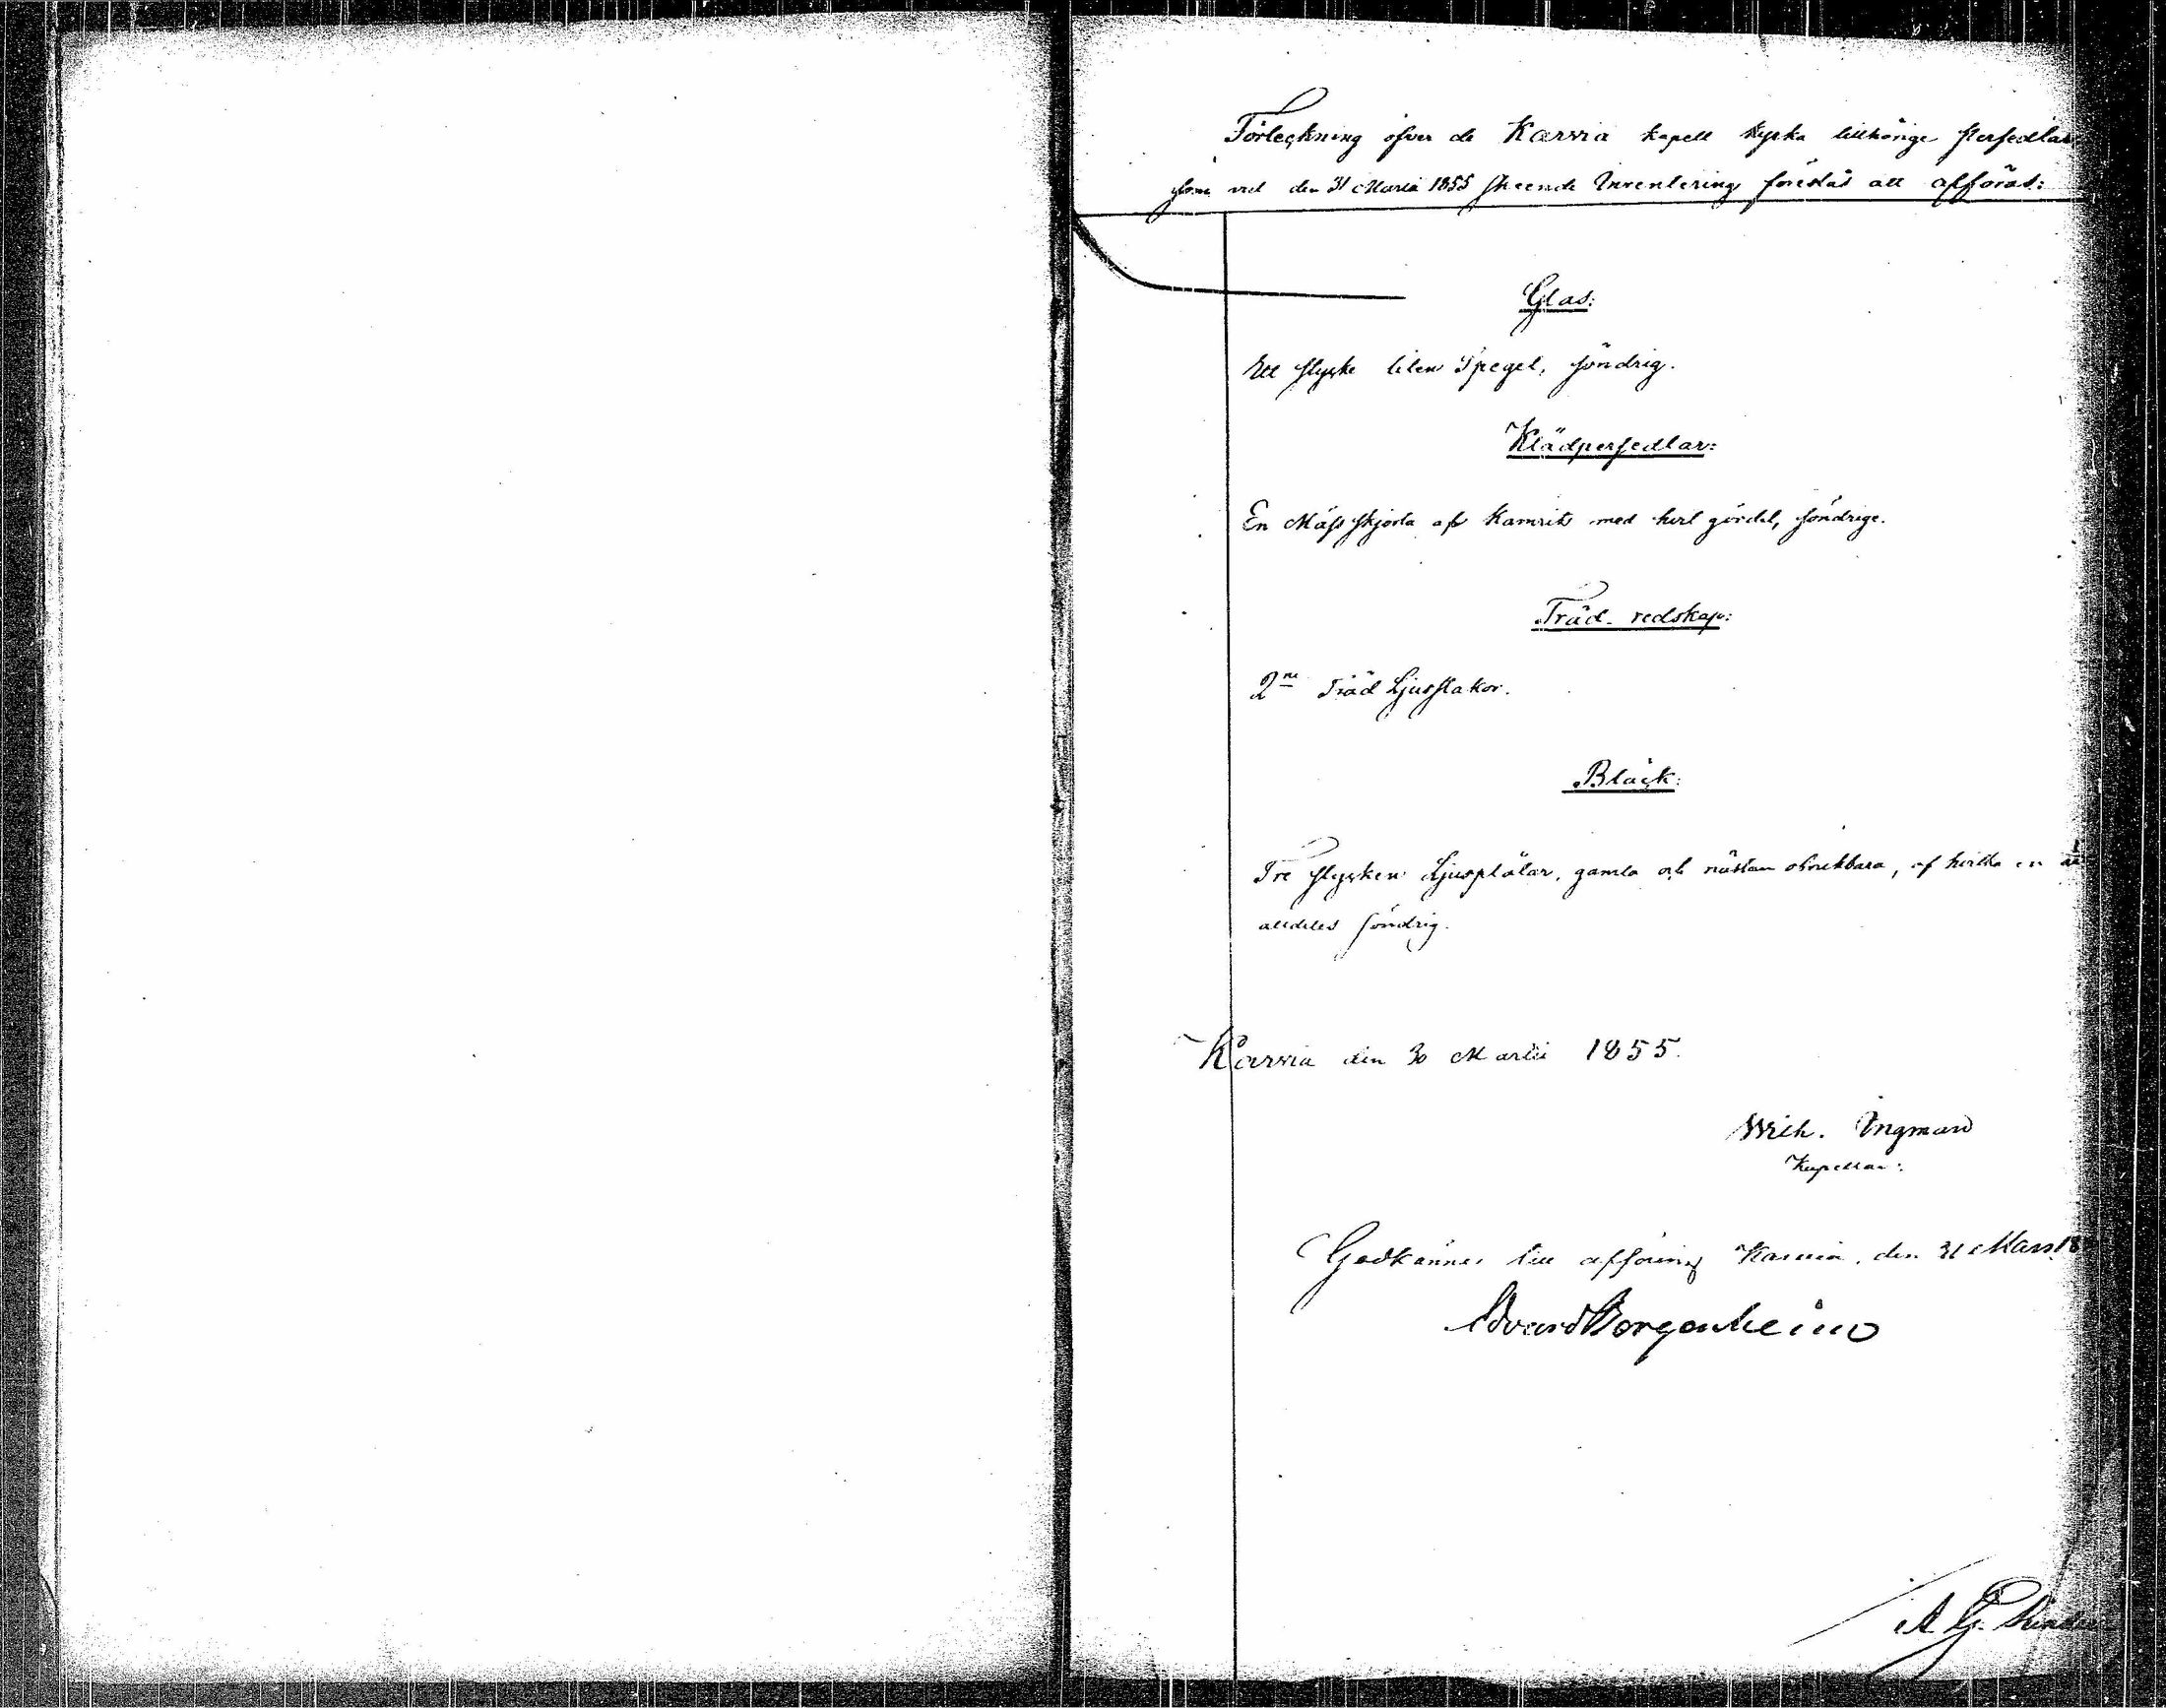 Förteckning öfver de Karvia kapell kyrka tillhörige persedlar
som vid den 31 Martii 1855 skeende Inventering föreslås att afföras:
Glas:
Ett stycke liten Spegel, söndrig.
Klädpersedlar:
En Mässskjorta af Kamrik med hvit gördel, söndrige.
Träd-redskap:
2ne Träd Ljusstakor.
Bläck:
Tre stycken Ljusplåtar, gamla och nästan obrukbara, af hvilka en är
alldeles söndrig.
Karvia den 30 Martii 1855.
Wilh. Ingman
Kapellan:
Godkännes till afföring Karvia, den 31 Mars 18
Edvard Borgenheim
A. G.